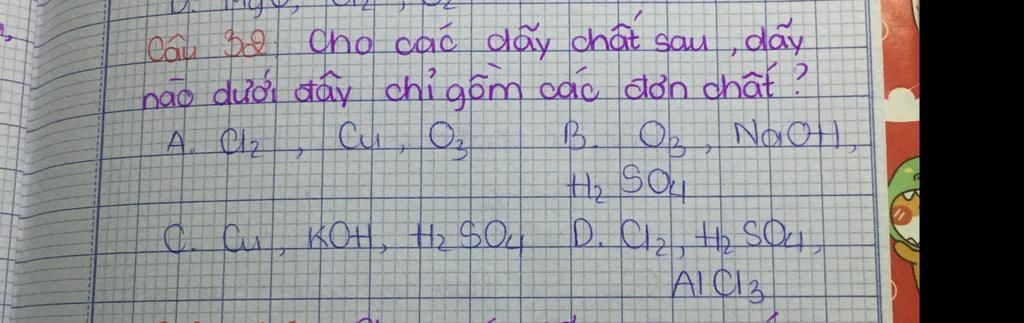 Câu 32 Cho các dãy chất sau, dãy
nào dưới đây chỉ gồm các đơn chất?
A. Cl2, Cu, O3 B. O3, NaOH,
H2 SO4
C. Cu, KOH, H2 SO4 D. Cl2, H2 SO4,
AlCl3